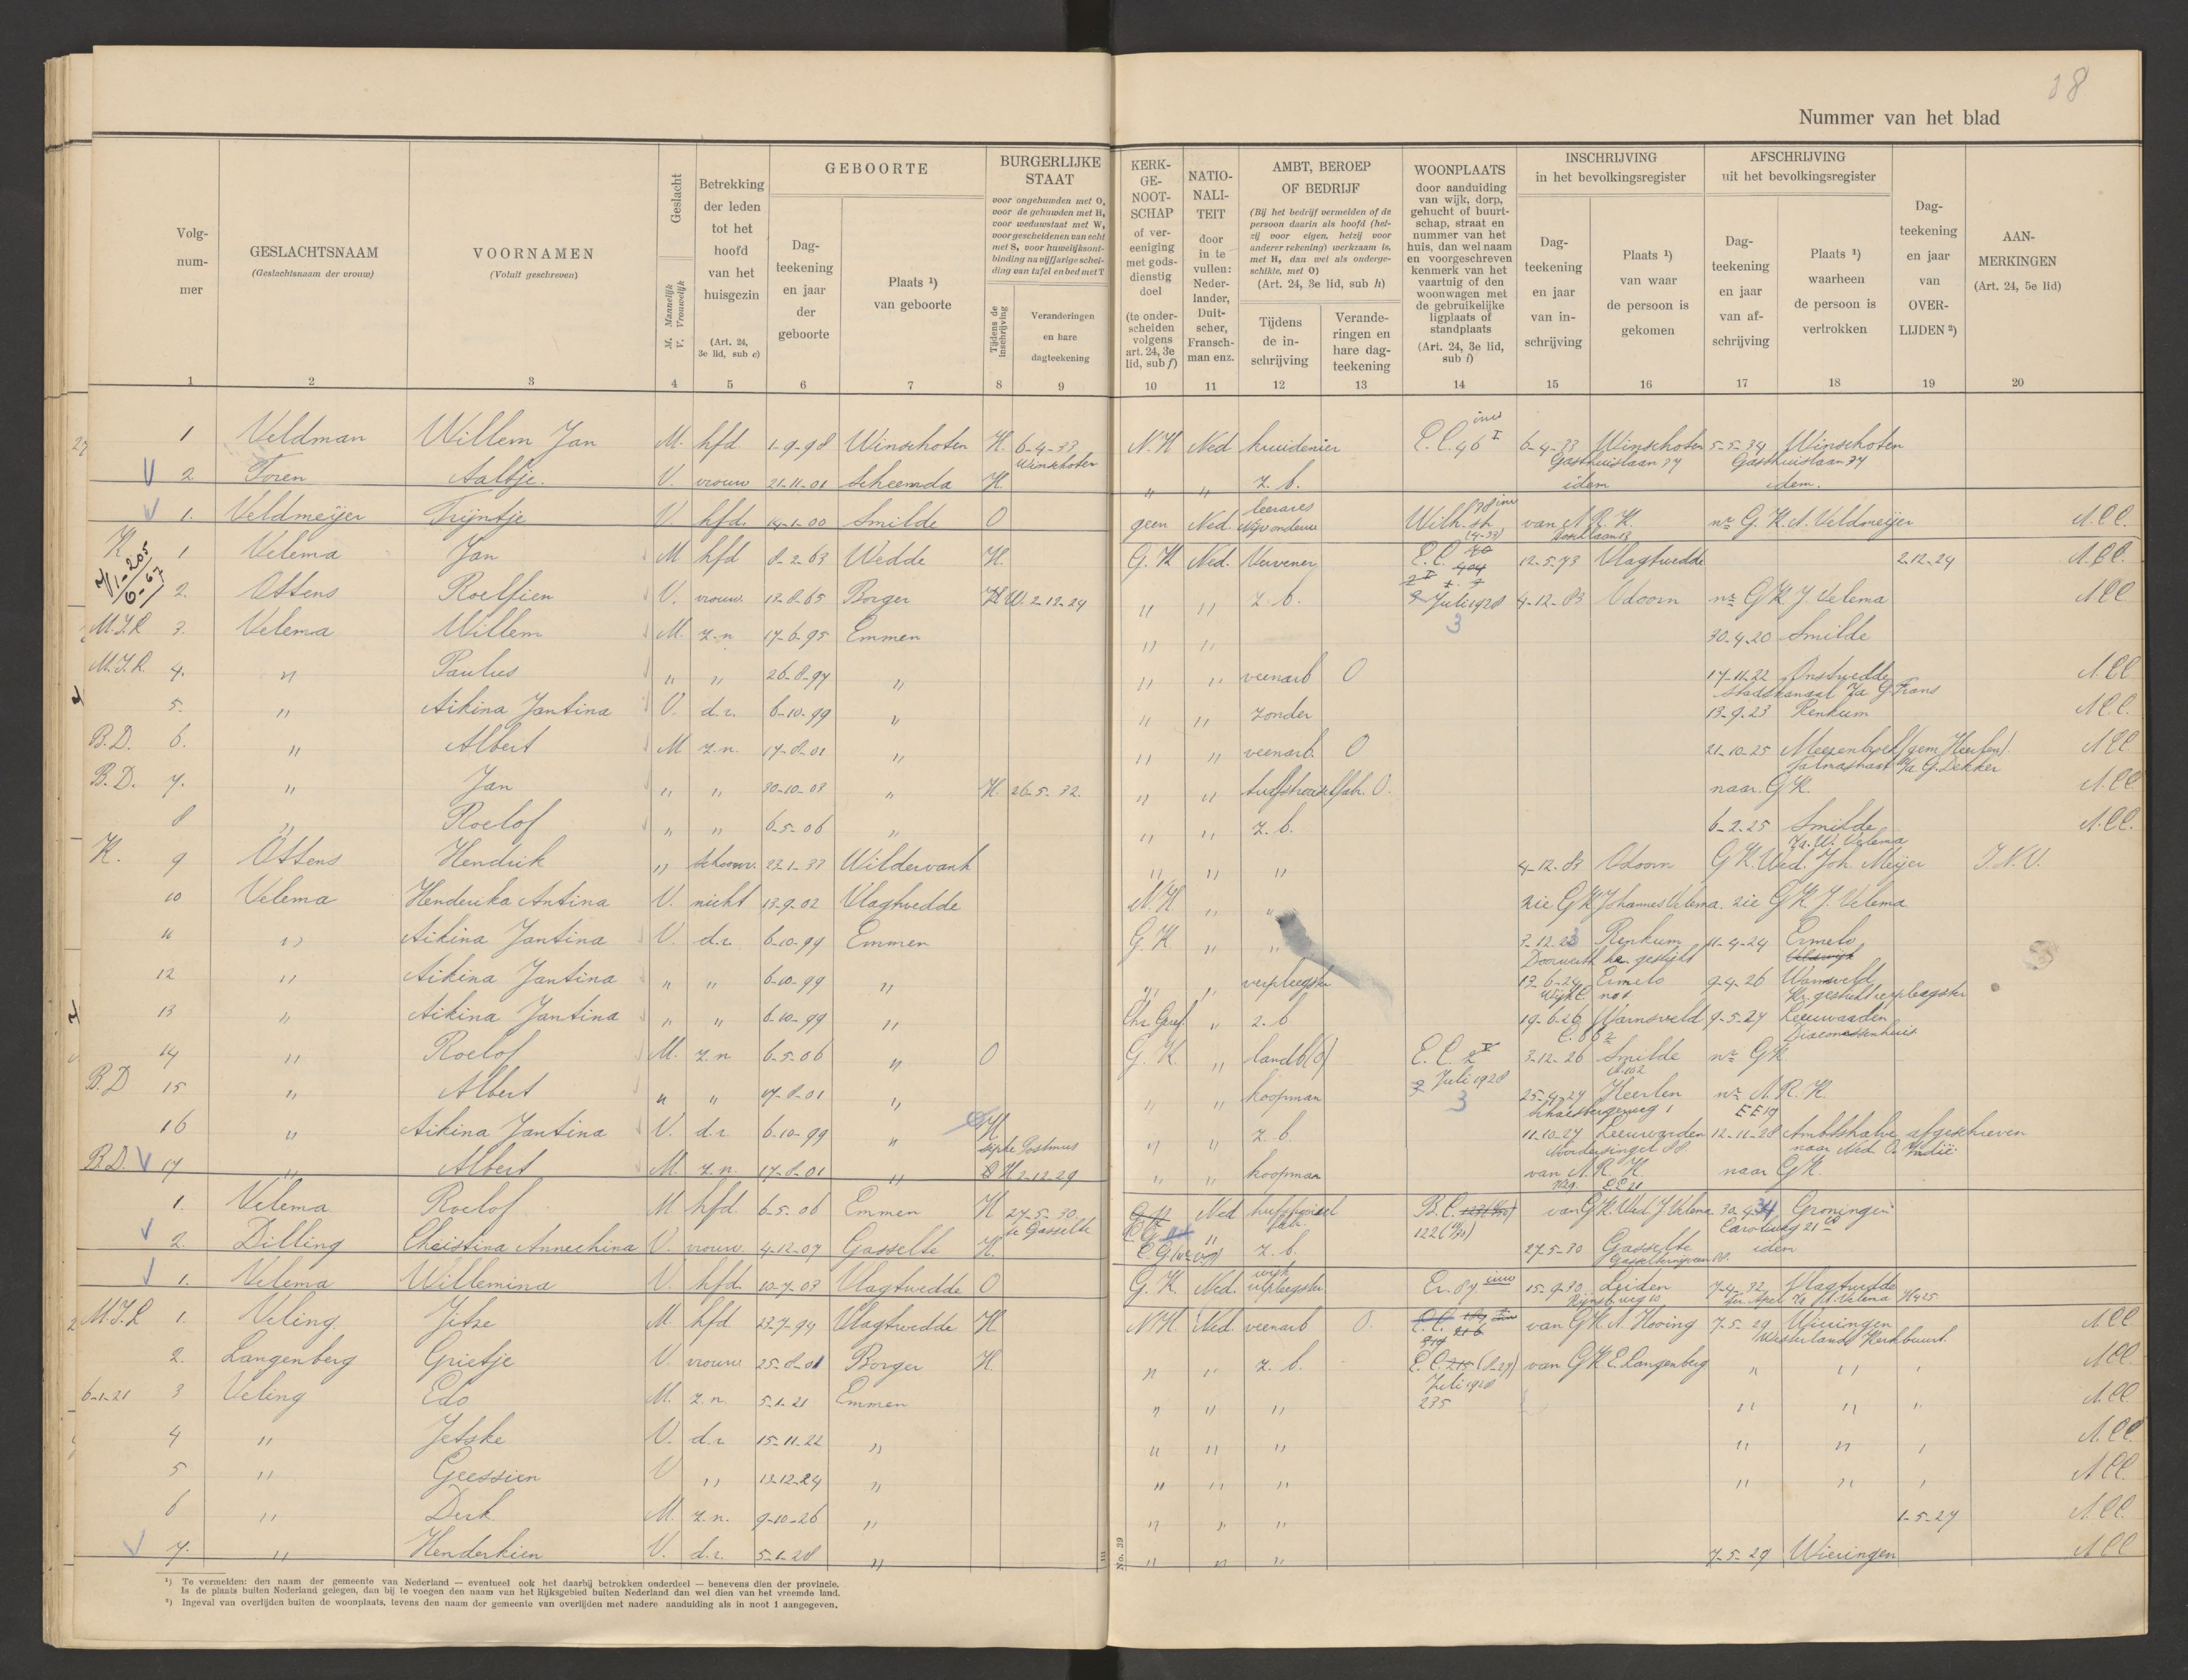 38
Nummer van het blad
Volg-
num-
mer
GESLACHTSNAAM
(Geslachtsnaam der vrouw)
VOORNAMEN
(Voluit geschreven)
Geslacht
M. Mannelijk
V. Vrouwelijk
Betrekking
der leden
tot het
hoofd
van het
huisgezin
(Art. 24,
3e lid, sub c)
GEBOORTE
Dag-
teekening
en jaar
der
geboorte
Plaats ¹)
van geboorte
BURGERLIJKE
STAAT
voor ongehuwden met O,
voor de gehuwden met H,
voor weduwstaat met W,
voor gescheidenen van echt
met S, voor huwelijksont-
binding na vijfjarige schei-
ding van tafel en bed met T
Tijdens de
inschrijving
Veranderingen
en hare
dagteekening
KERK-
GE-
NOOT-
SCHAP
of ver-
eeniging
met gods-
dienstig
doel
(te onder-
scheiden
volgens
art. 24, 3e
lid, sub f)
NATIO-
NALI-
TEIT
door
in te
vullen:
Neder-
lander,
Duit-
scher,
Fransch-
man enz.
AMBT, BEROEP
OF BEDRIJF
(Bij het bedrijf vermelden of de
persoon daarin als hoofd (het-
zij voor eigen, hetzij voor
anderer rekening) werkzaam is,
met H, dan wel als onderge-
schikte, met O)
(Art. 24, 3e lid, sub h)
Tijdens
de in-
schrijving
Verande-
ringen en
hare dag-
teekening
WOONPLAATS
door aanduiding
van wijk, dorp,
gehucht of buurt-
schap, straat en
nummer van het
huis, dan wel naam
en voorgeschreven
kenmerk van het
vaartuig of den
woonwagen met
de gebruikelijke
ligplaats of
standplaats
(Art. 24, 3e lid,
sub i)
INSCHRIJVING
in het bevolkingsregister
Dag-
teekening
en jaar
van in-
schrijving
Plaats ¹)
van waar
de persoon is
gekomen
AFSCHRIJVING
uit het bevolkingsregister
Dag-
teekening
en jaar
van af-
schrijving
Plaats ¹)
waarheen
de persoon is
vertrokken
Dag-
teekening
en jaar
van
OVER-
LIJDEN ²)
AAN-
MERKINGEN
(Art. 24, 5e lid)
1 2 3 4 5 6 7 8 9 10 11 12 13 14 15 16 17 18 19 20
1 Veldman Willem Jan M. hfd 1-9-98 Winschoten H. 6-4-33 N.H Ned kruidenier E.C. 46 I 6-4-33 Winschoten 5-5-34 Winschoten
Winschoten Gasthuislaan 37 Gasthuislaan 37
2 Toren Aaltje. V. vrouw 21-11-01 Scheemda H " " z.b. idem idem.
1. Veldmeijer Trijntje V. hfd. 14-1-00 Smilde O geen Ned. leerares Wilh. str. van A.R.K. nr G.K. A. Veldmeijer A.C.C.
K 1 Velema Jan M hfd 8-2-63 Wedde H. G.K Ned. Vervener E.C. 12-5-73 Vlagtwedde 2-12-24 A.C.C.
2. Ottens Roelfien V. vrouw. 13-8-65 Borger H W. 2-12-24 " " z.b. Juli 1928 4-12-83 Odoorn nr GK J. Velema A.C.C
3
M.I.R 3. Velema Willem M. z.n. 17-6-95 Emmen " " 30-4-20 Smilde
M.I.R. 4. " Paulus " " 26-8-97 " " " veenarb O 17-11-22 Onstwedde A.C.C
Stadskanaal
5. " Aikina Jantina V. d.r. 6-10-99 " " " zonder 13-9-23 Renkum A.C.C.
B.D. 6. " Albert M z.n. 17-8-01 " " " veenarb. O 21-10-25 (gem. Heerlen). A.C.C
B.D. 7. " Jan " " 30-10-03 " H. 26-5-32. " " O. naar G.K. A.C.C
8 " Roelof " " 6-5-06 " " " z.b. 6-2-25 Smilde A.C.C.
K. 9 Ottens Hendrik " 23-1-33 Wildervank " " " 4-12-83 Odoorn G.K. Wed. Joh. Meijer
10 Velema Henderika Antina V. nicht 13-9-02 Vlagtwedde N.H. " " zie GK Johannes Velema. zie GK J. Velema
11 " Aikina Jantina V. d.r. 6-10-99 Emmen G.K " " 3-12-23 Renkum 11-4-24 Ermelo
12 " Aikina Jantina " " 6-10-99 " " " verpleegster 13-6-24 Ermelo 9-4-26 Warnsveld
13 " Aikina Jantina " " 6-10-99 " Chr. Geref. " z.b 19-6-26 Warnsveld 9-5-27 Leeuwarden
Diaconessenhuis
14 " Roelof M. z.n 6-5-06 " O G.K. " landb(o) E.C. 3-12-26 Smilde nr GK
Juli 1928
3
B.D 15 " Albert " " 17-8-01 " " " koopman 25-4-27 Heerlen nr A.R.K.
16 " Aikina Jantina V. d.r. 6-10-99 " H " " z.b. 11-10-27 Leeuwarden 12-11-28 Ambtshalve afgeschreven
Sipke Postmus Noordersingel 88 naar Ned. O. Indië.
B.D. 17 " Albert M. z.n. 17-8-01 " H 2-12-29 " " koopman van A.R.K naar GK.
1. Velema Roelof M hfd. 6-5-06 Emmen H 27-5-30. Ned B.C. van GK. Wed. J Velema 30-4-34 Groningen
te Gasselte 122
2. Dilling Christina Annechina V. vrouw. 4-12-07 Gasselte H. " z.b. 27-5-30 Gasselte idem
1. Velema Willemina V. hfd. 10-7-03 Vlagtwedde O G.K. Ned. wijk 15-9-30 Leiden 7-4-32 Vlagtwedde
verpleegster
M.I.R 1. Veling Jetze M hfd 23-7-94 Vlagtwedde H N.H. Ned. veenarb O. van GK A. Hooing 7-5-29 Wieringen A.C.C
2. Langenberg Grietje V. vrouw 25-8-01 Borger H. " " z.b. E.C. 215 van GK E. Langenberg " " " A.C.C
Juli 1928
6-1-21 3 Veling Edo M. z.n. 5-1-21 Emmen " " " 235 " " " A.C.C
4 " Jetske V. d.r 15-11-22 " " " " " " " A.C.C
5 " Geessien V " 13-12-24 " " " " " " " A.C.C
6 " Derk M. z.n. 9-10-26 " " " " 1-5-27 A.C.C
7. " Henderkien V. d.r. 5-1-28 " " " " 7-5-29 Wieringen A.C.C
No. 39
¹) Te vermelden: den naam der gemeente van Nederland — eventueel ook het daarbij betrokken onderdeel — benevens dien der provincie.
Is de plaats buiten Nederland gelegen, dan bij te voegen den naam van het Rijksgebied buiten Nederland dan wel dien van het vreemde land.
²) Ingeval van overlijden buiten de woonplaats, tevens den naam der gemeente van overlijden met nadere aanduiding als in noot 1 aangegeven.